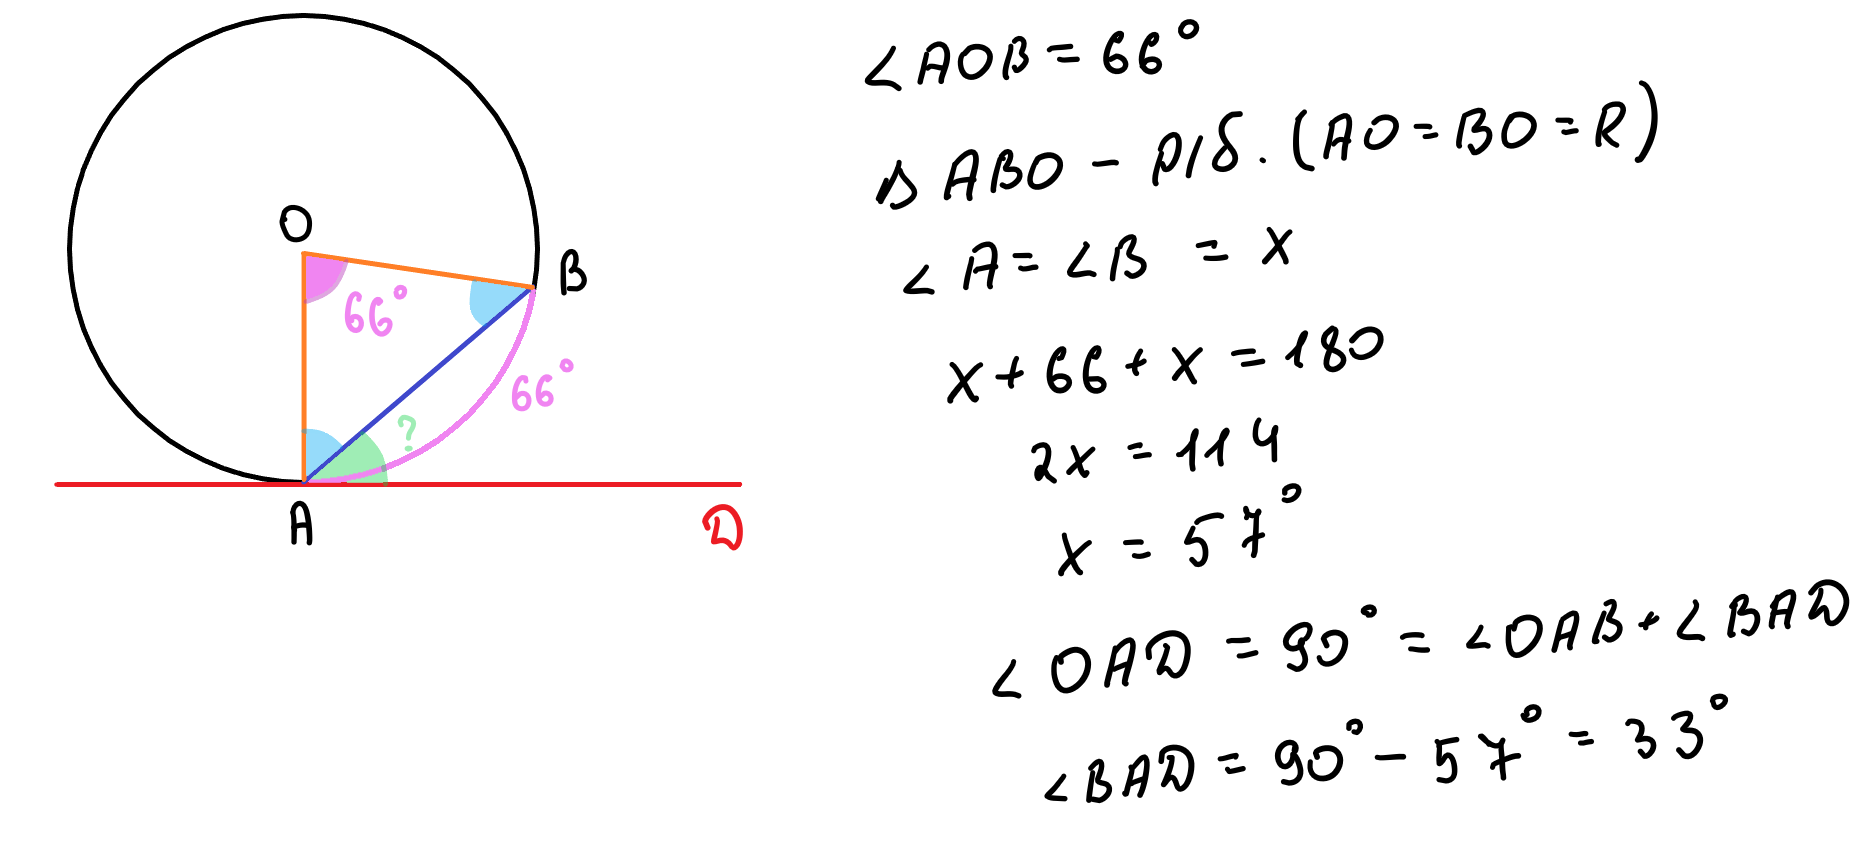 O
B
66°
66°
?
A
D
∠AOB = 66°
△ABO - р/б. (AO = BO = R)
∠A = ∠B = x
x + 66 + x = 180
2x = 114
x = 57°
∠OAD = 90° = ∠OAB + ∠BAD
∠BAD = 90° - 57° = 33°